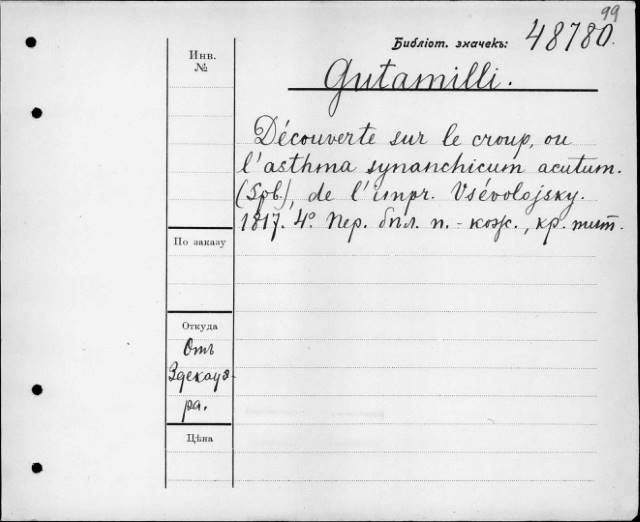 99
Библіот. значекъ: 48780.
Инв.
№
Gutamilli.
Découverte sur le croup, ou
l'asthma synanchicum acutum.
(Spb.), de l'impr. Vsévolojsky.
1817. 4º. Пер. бѣл. п.-кож., кр. тит.
По заказу
Откуда
Отъ
Здекауэ-
ра.
Цѣна